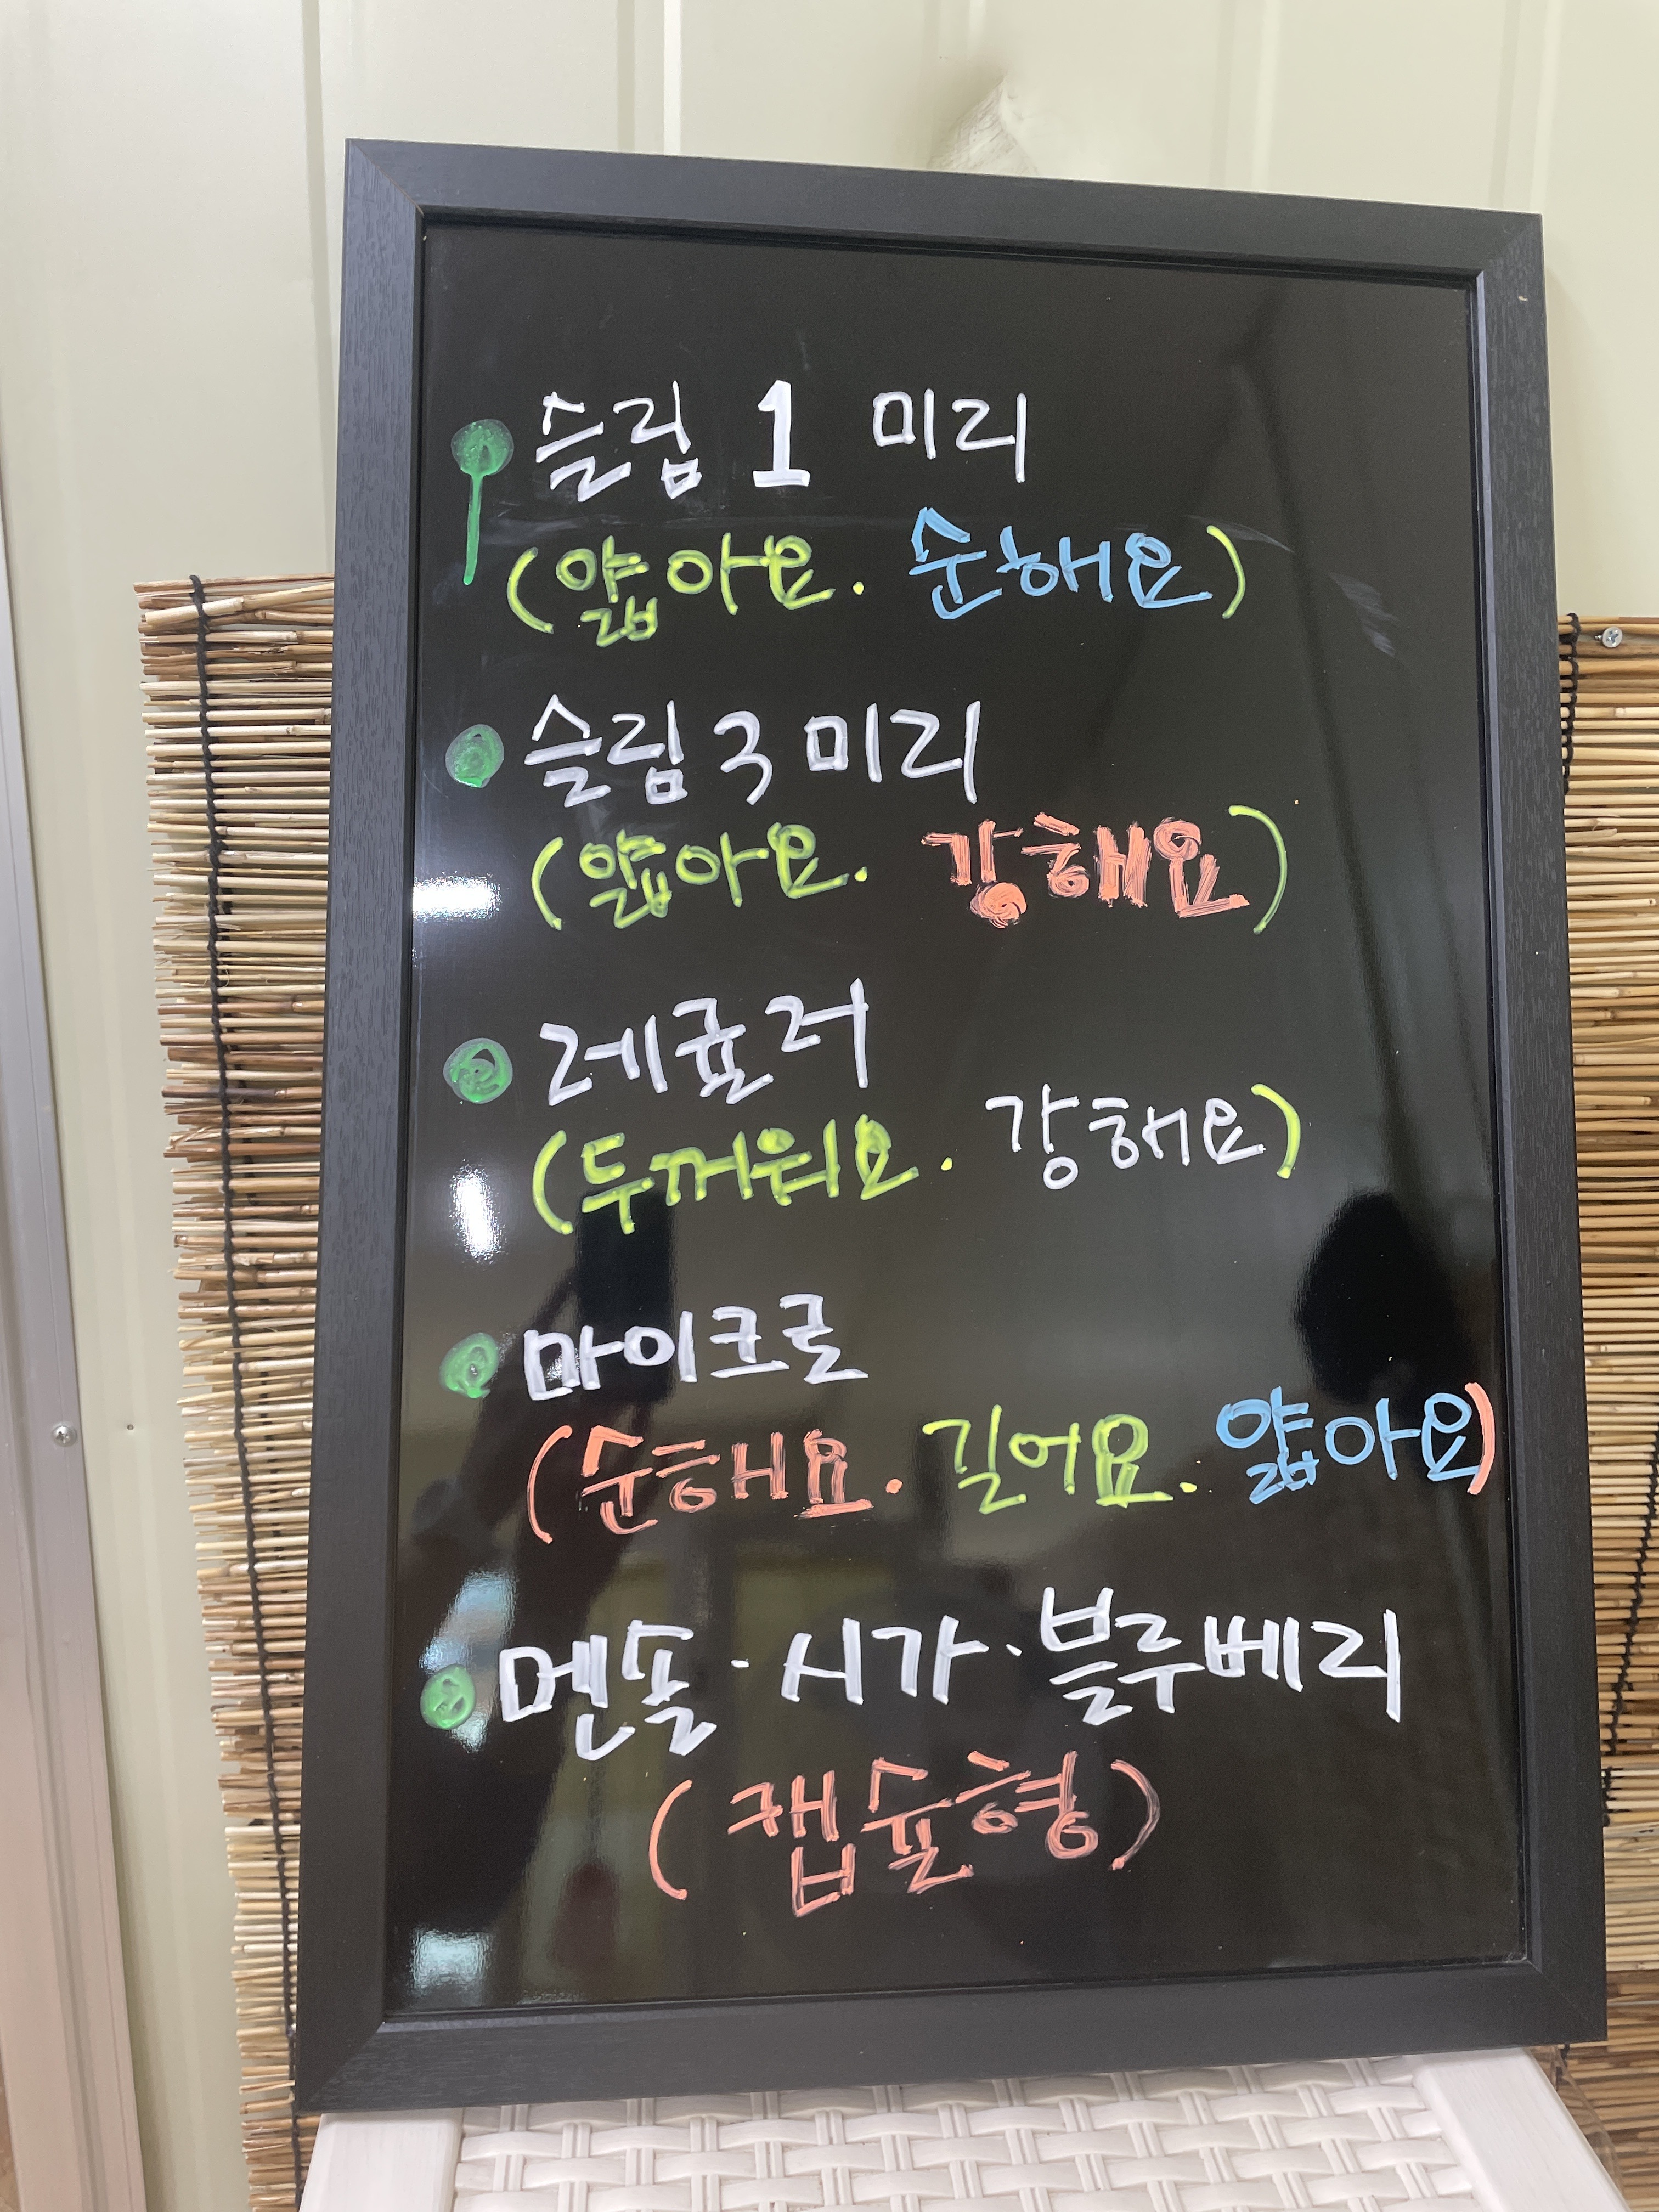 슬림 1 미리
(얇아요. 순해요)
슬림 3 미리
(얇아요. 강해요)
레귤러
(두꺼워요. 강해요)
마이크로
(순해요. 길어요. 얇아요)
멘솔·시가·블루베리
(캡슐형)